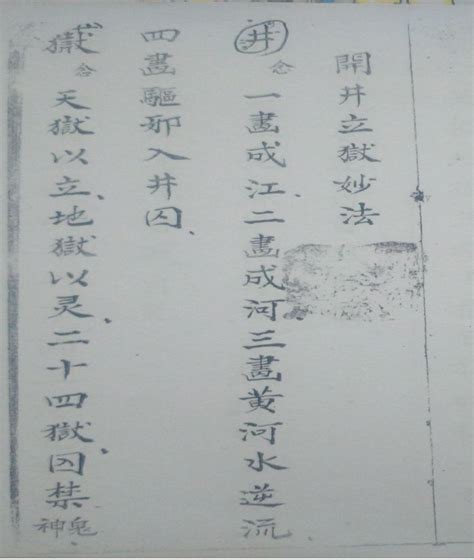 開井立獄妙法
井念一畫成江、二畫成河、三畫黃河水逆流
四畫驅邪入井囚、
獄念天獄以立、地獄以灵、二十四獄、囚禁鬼神